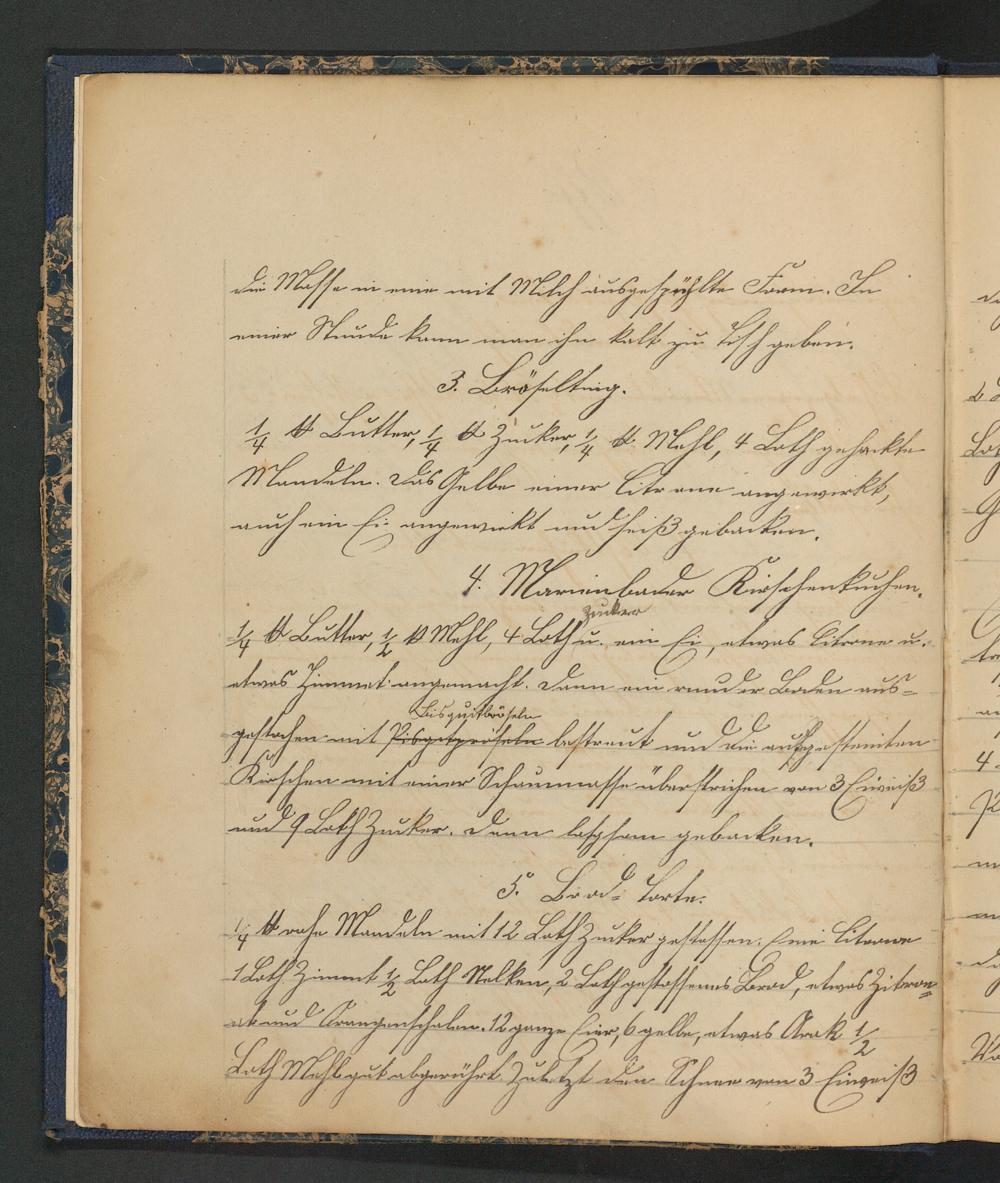 die Masse in eine mit Milch ausgespühlte Form. In
einer Stunde kann man ihn kalt zu Tisch geben.
3. Bröselteig.
1/4 ℔ Butter, 1/4 ℔ Zucker, 1/4 ℔ Mehl, 4 Loth gehackte
Mandeln. Das Gelbe einer Citrone angewirkt,
auch ein Ei angewirkt und heiß gebacken.
4. Marienbader Kirschenkuchen.
Zucker
1/4 ℔ Butter, 1/2 ℔ Mehl, 4 Loth u. ein Ei, etwas Citrone u.
etwas Zimmet angemacht. Dann ein runder Boden aus-
Bisquitbröseln
gestochen mit Pisgotpröseln bestreut und die aufgesteinten
Kirschen mit einer Schaummasse überstrichen von 3 Eiweiß
und 9 Loth Zucker. Dann langsam gebacken.
5. Brod-Torte.
1/4 ℔ rohe Mandeln mit 12 Loth Zucker gestossen. Eine Citrone
1 Loth Zimmt 1/2 Loth Nelken, 2 Loth gestossenes Brod, etwas Zitron=
at und Orangenschalen. 12 ganze Eier, 6 gelbe, etwas Arak 1/2
Loth Mehl gut abgerührt Zuletzt den Schnee von 3 Eiweiß